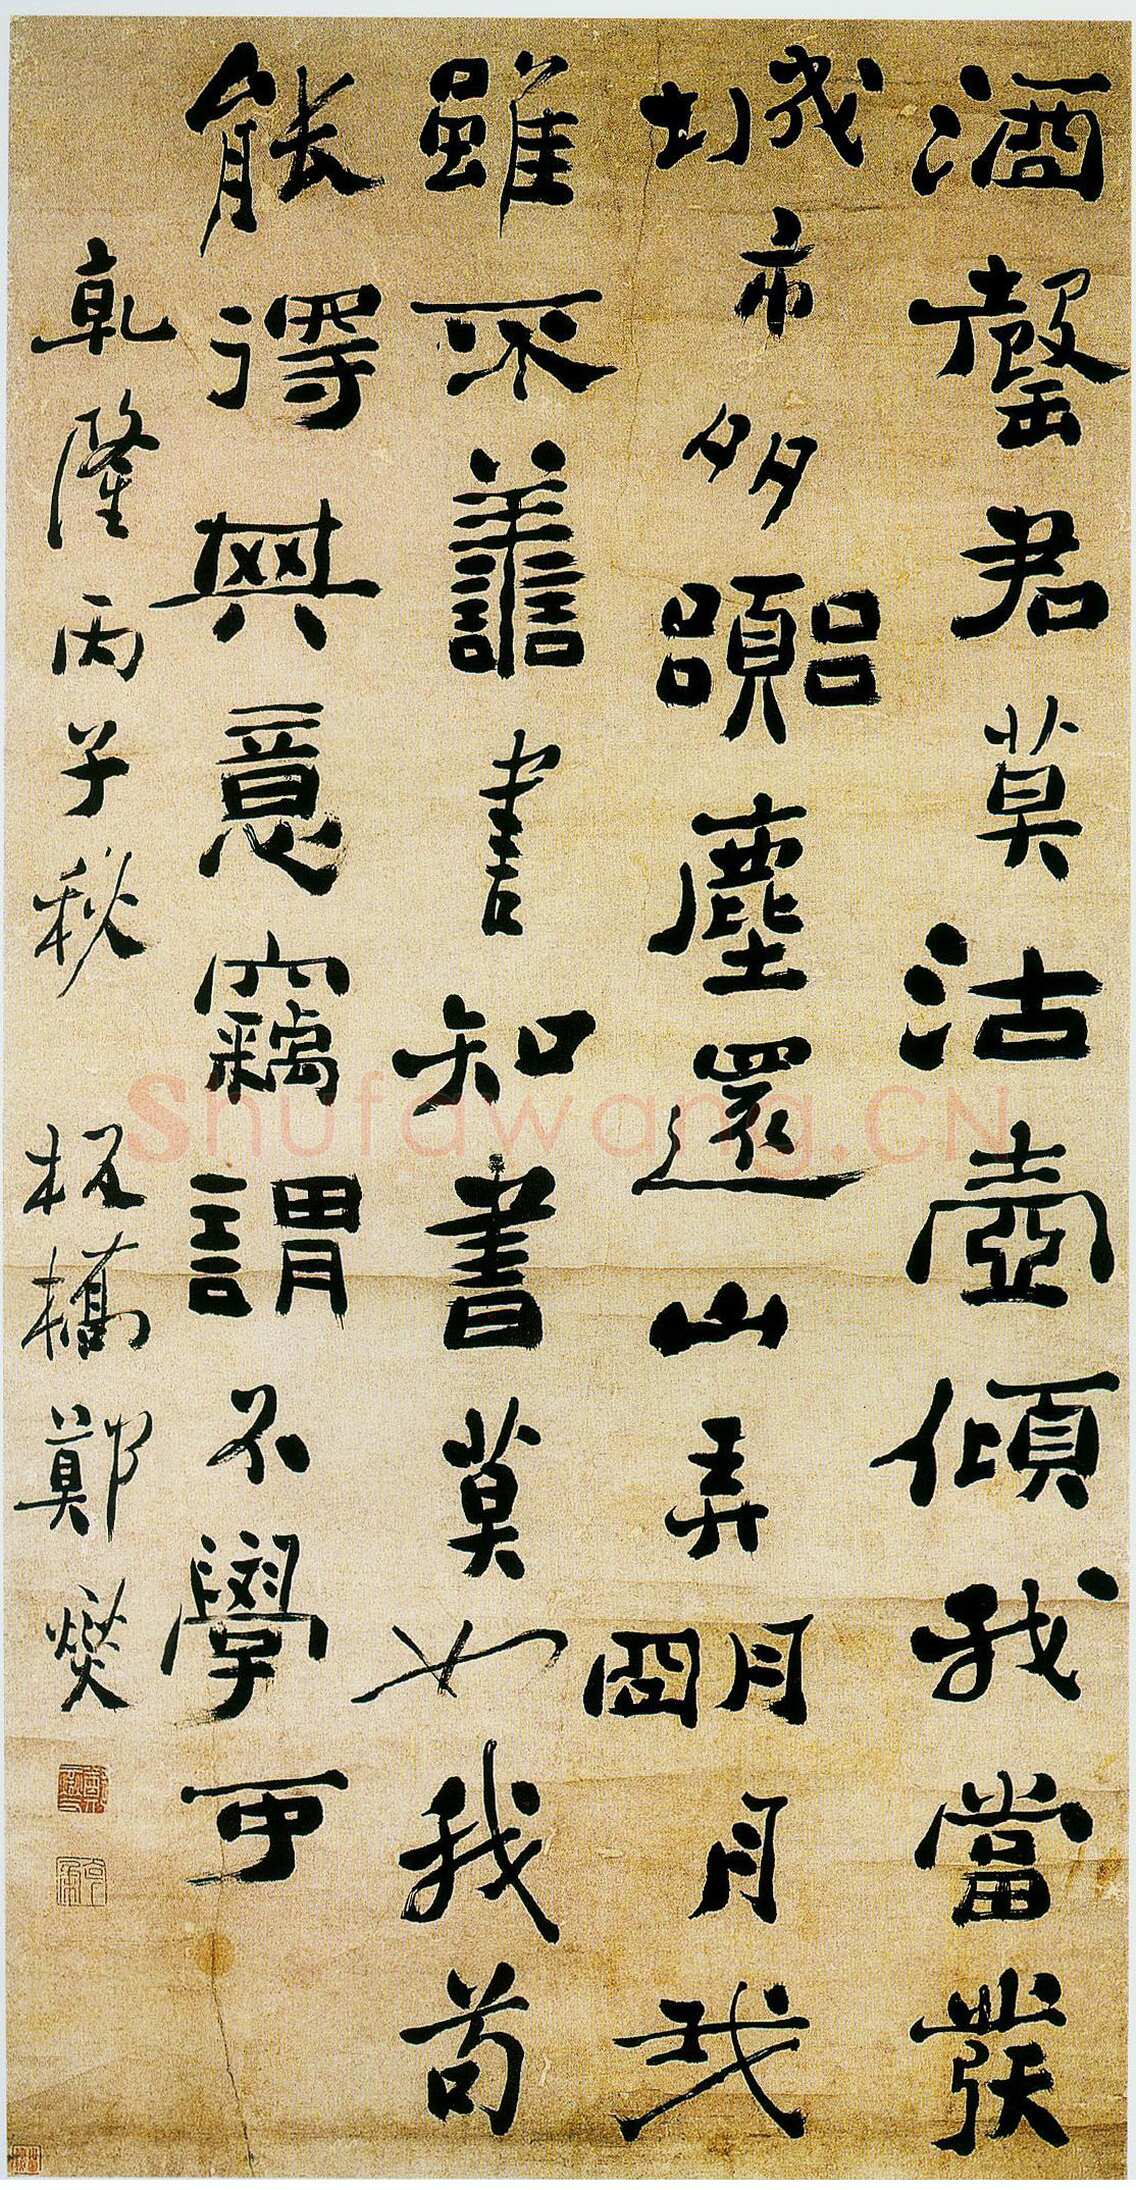 酒罄君莫沽壺傾我當發
城市多嚻塵還山弄明月我
雖不善書知書莫如我苟
能得其意竊謂不學可
乾隆丙子秋
板橋鄭燮
Shufawang.CN